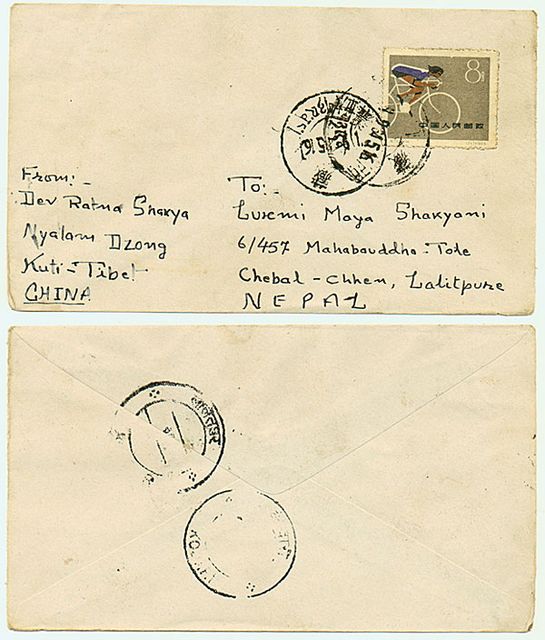 8分
中国人民邮政
From:-
Dev Ratna Shakya
Nyalam Dzong
Kuti-Tibet
CHINA
To:-
Luxmi Maya Shakyani
6/457 Mahabouddha-Tole
Chebal-Chhen, Lalitpure
NEPAL